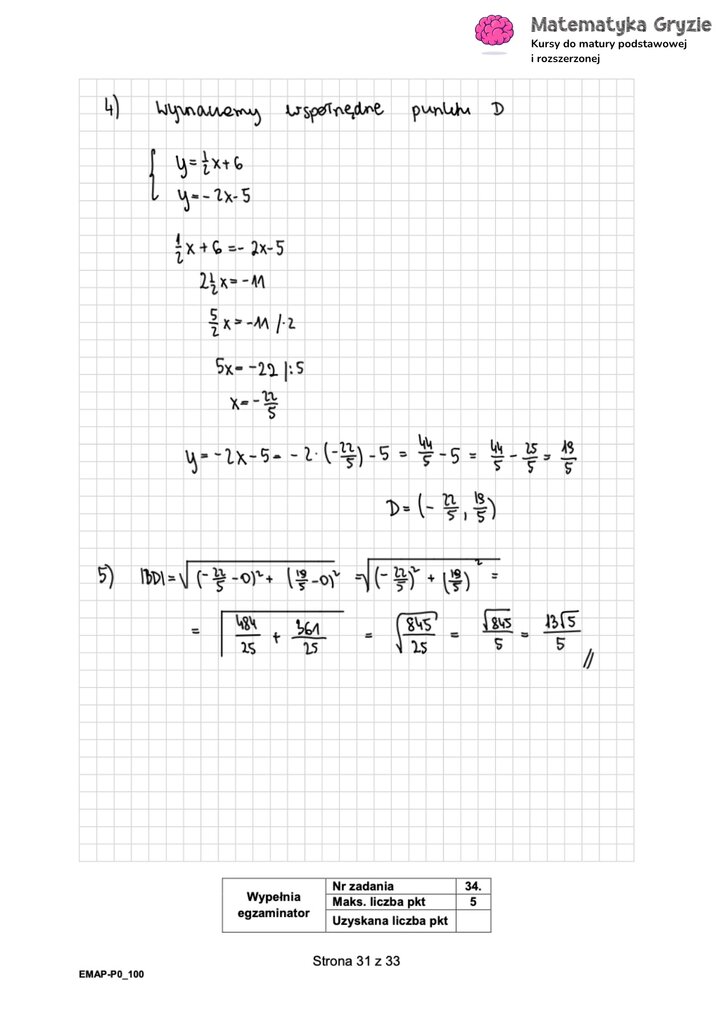 Matematyka Gryzie
Kursy do matury podstawowej
i rozszerzonej
4) Wyznaczmy współrzędne punktu D
y = 1/2 x + 6
y = - 2x - 5
1/2 x + 6 = - 2x - 5
2 1/2 x = - 11
5/2 x = - 11 / · 2
5x = - 22 | : 5
x = - 22/5
y = - 2x - 5 = - 2 · (- 22/5) - 5 = 44/5 - 5 = 44/5 - 25/5 = 19/5
D = (- 22/5, 19/5)
5) |BD| = √((- 22/5 - 0)² + (19/5 - 0)²) = √((- 22/5)² + (19/5)²) =
= √(484/25 + 361/25) = √(845/25) = √845/5 = 13√5/5 //
Wypełnia
egzaminator
Nr zadania 34.
Maks. liczba pkt 5
Uzyskana liczba pkt
Strona 31 z 33
EMAP-P0_100